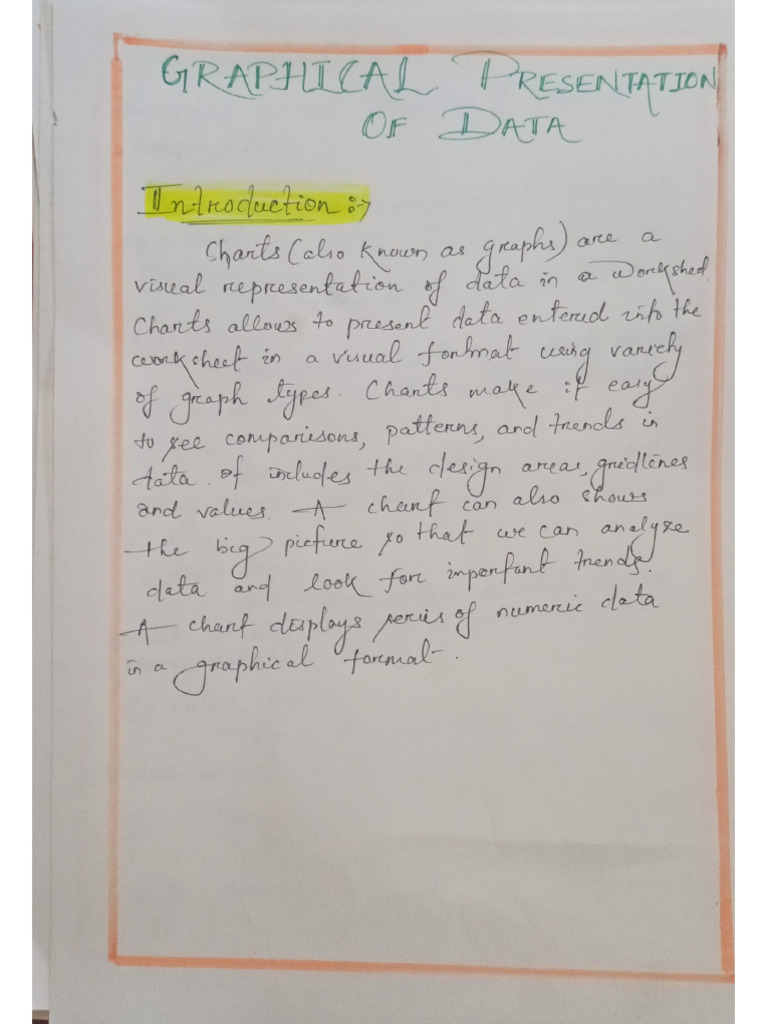 GRAPHICAL PRESENTATION
OF DATA
Introduction:-
Charts (also known as graphs) are a
visual representation of data in a worksheet.
Charts allows to present data entered into the
worksheet in a visual format using variety
of graph types. Charts make it easy
to see comparisons, patterns, and trends in
data. of includes the design areas, gridlines
and values. A chart can also shows
the big picture so that we can analyze
data and look for important trends.
A chart displays series of numeric data
in a graphical format.